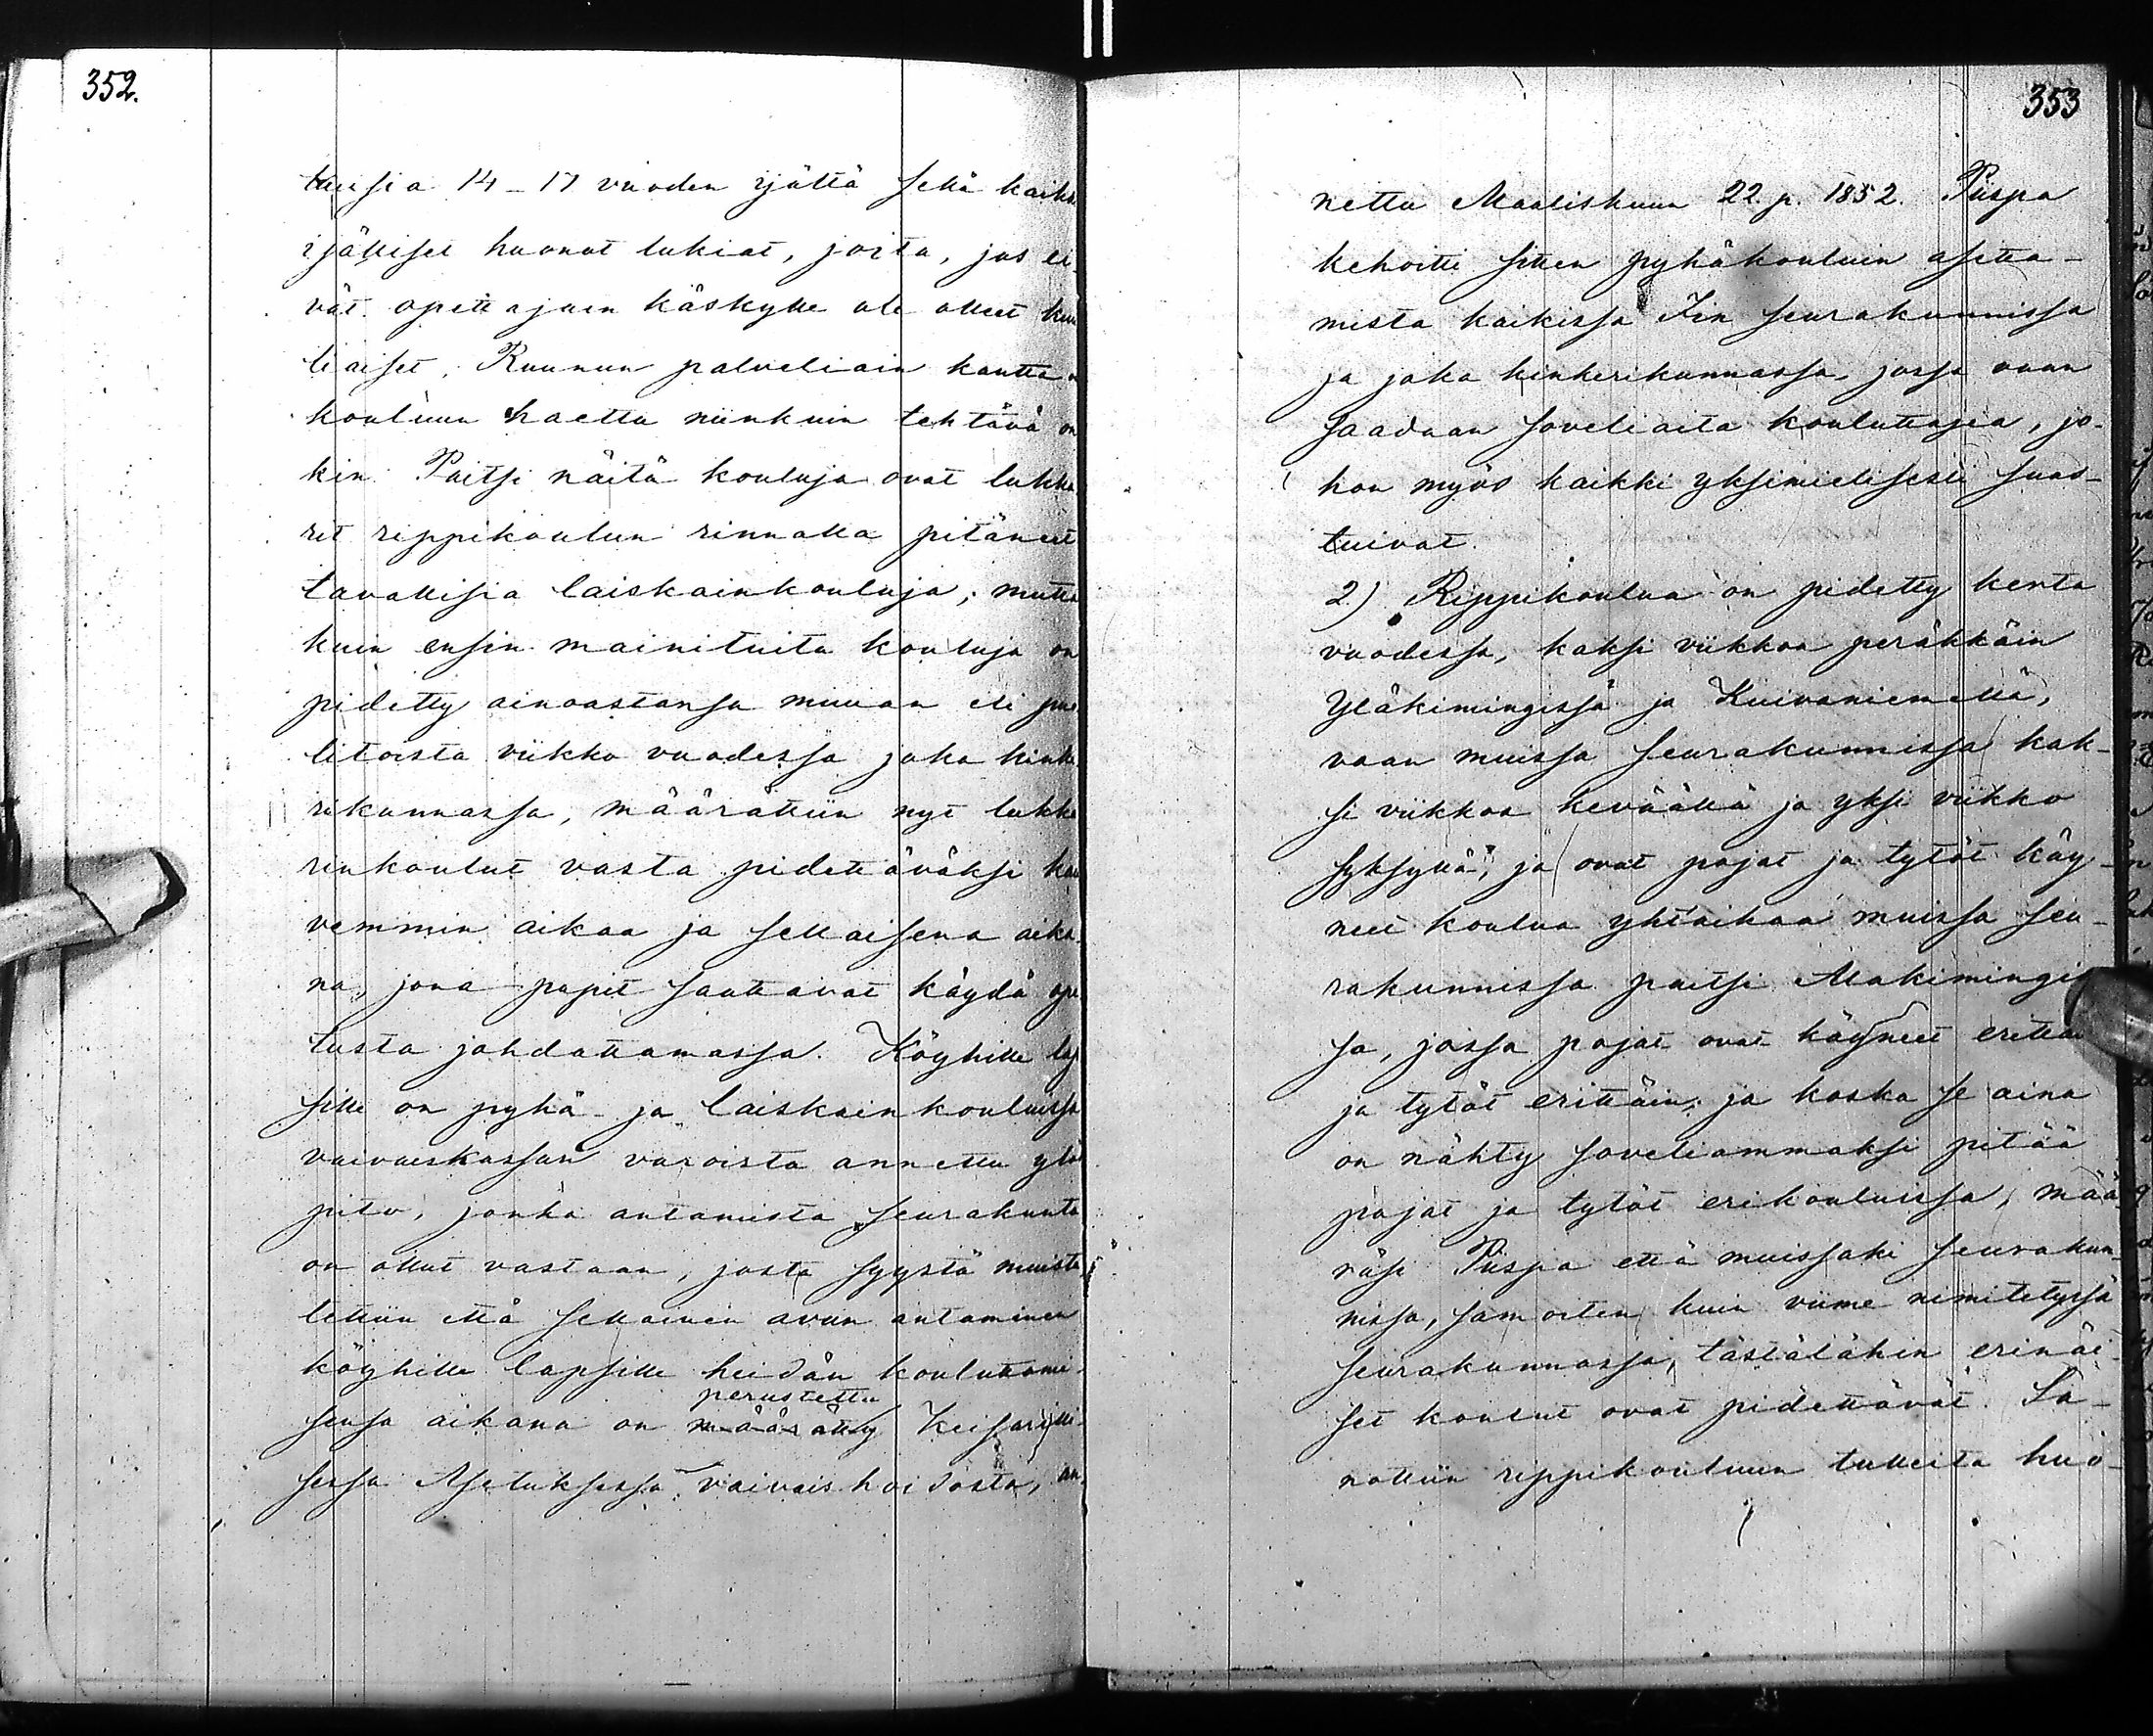 352.
tuksia 14–17 vuoden ijältä sekä kaiken
ijälliset huonot lukiat, joita, jos ei-
vät opettajain käskylle ole olleet kuu
liaiset, Ruunun palveliain kautta on
kouluun haettu niinkuin tehtävä on
kin. Paitsi näitä kouluja ovat lukka
rit rippikoulun rinnalla pitäneet
tavallisia laiskainkouluja; mutta
kuin ensin mainituita kouluja on
pidetty ainoastansa muuan eli puo
litoista viikko vuodessa joka kinke
rikunnassa, määrättiin nyt lukka
rinkoulut vasta pidettäväksi kau
vemmin aikaa ja sellaisena aika
na, jona papit saattavat käydä ope
tusta johdattamassa. Köyhille lap
sille on pyhä- ja laiskainkouluissa
vaivaiskassan varoista annettu ylös
pito, jonka antamista seurakunta
on ollut vastaan, josta syystä muistu
tettiin että sellainen avun antaminen
köyhille lapsille heidän kouluttami-
perustettu
sensa aikana on määrätty Keisarilli-
sessa Asetuksessa vaivaishoidosta, an-
353
nettu Maaliskuun 22. p. 1852. Piispa
kehoitti sitten pyhäkouluin asetta-
mista kaikissa Iin seurakunnissa
ja joka kinkerikunnassa, jossa vaan
saadaan soveliaita kouluttajia, jo-
hon myös kaikki yksimielisesti suos-
tuivat.
2) Rippikoulua on pidetty kerta
vuodessa, kaksi viikkoa peräkkäin
Yläkimingissä ja Kuivaniemellä,
vaan muissa seurakunnissa kak-
si viikkoa keväällä ja yksi viikko
syksyllä; ja ovat pojat ja tytöt käy-
neet koulua yhtaikaa muissa seu-
rakunnissa paitsi Alakimingis
sa, jossa pojat ovat käyneet erittäin
ja tytöt erittäin; ja koska se aina
on nähty soveliammaksi pitää
pojat ja tytöt erikouluissa, mää
räsi Piispa että muissaki seurakun-
nissa, samoiten kuin viime nimitetyssä
seurakunnassa, tästälähin erinäi-
set koulut ovat pidettävät. Sa-
nottiin rippikouluun tulleita huo-